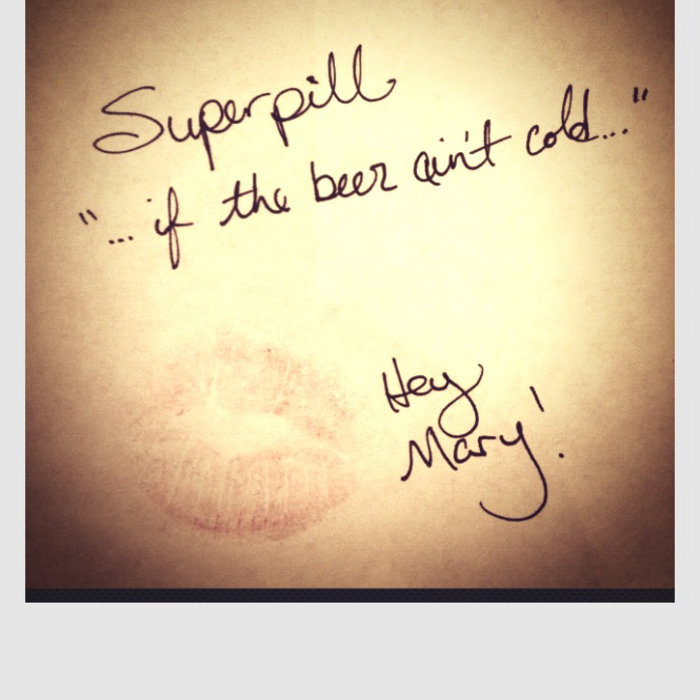 Superpill
"... if the beer ain't cold..."
Hey
Mary!